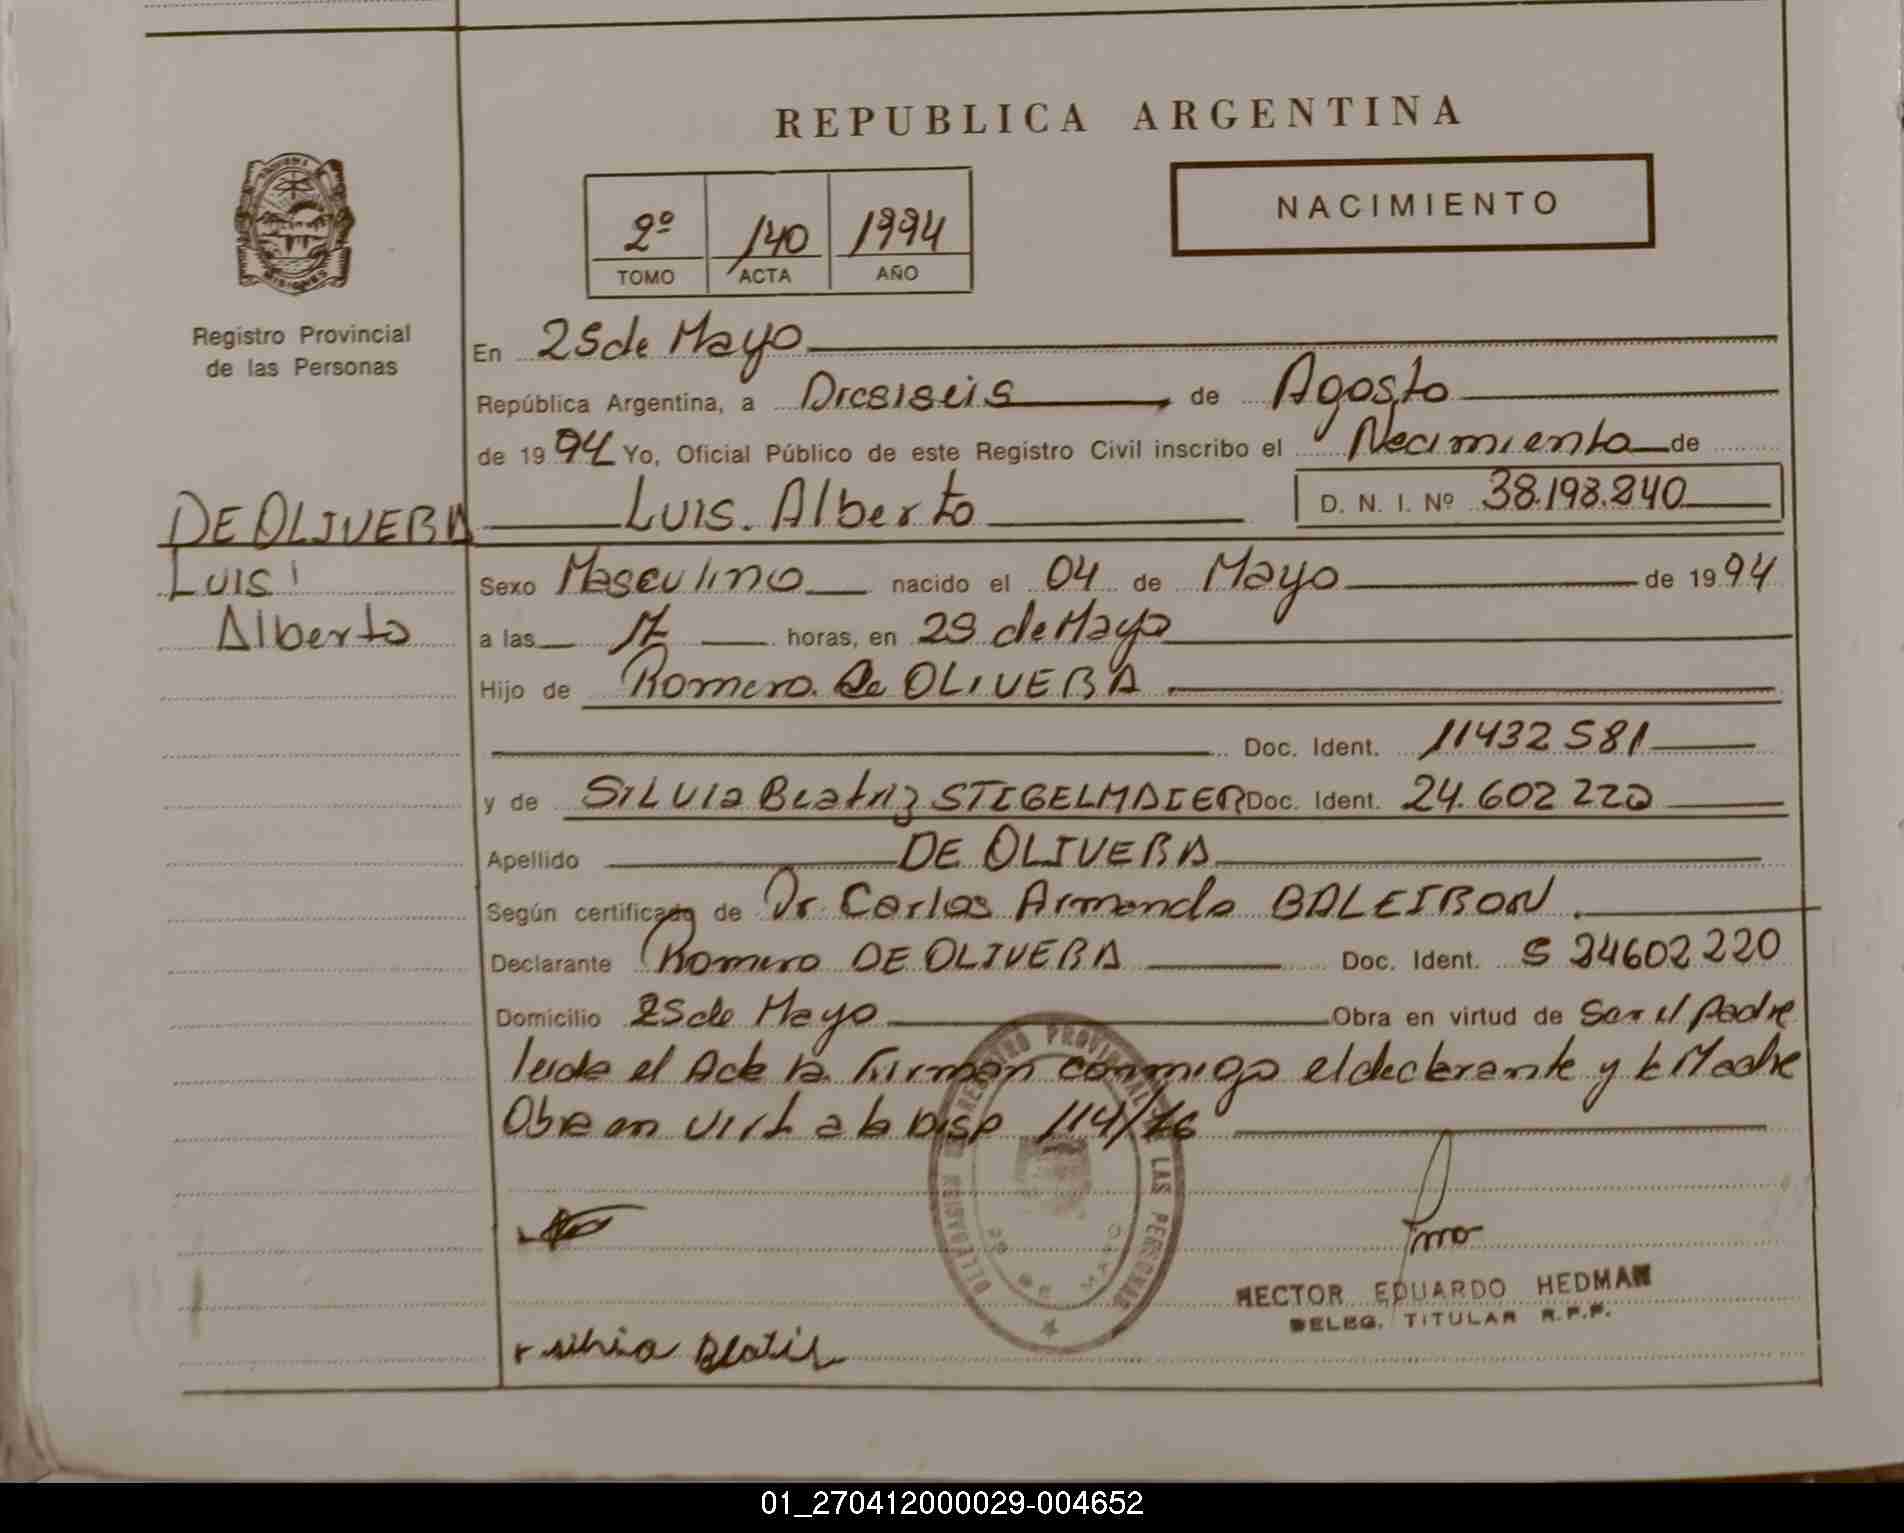 REPUBLICA ARGENTINA
NACIMIENTO
2º 140 1994
TOMO ACTA AÑO
Registro Provincial
de las Personas
En 25 de Mayo
República Argentina, a Diesiseis de Agosto
de 1994 Yo, Oficial Público de este Registro Civil inscribo el Nacimiento de
DE OLIVERA Luis. Alberto D. N. I. Nº 38.198.240
Luis
Alberto
Sexo Masculino nacido el 04 de Mayo de 1994
a las 17 horas, en 25 de Mayo
Hijo de Romero De OLIVERA
Doc. Ident. 11432581
y de SILVIA Beatriz STIGELMAIER Doc. Ident. 24.602 220
Apellido DE OLIVERA
Según certificado de Dr. Carlos Armando BALEIRON
Declarante Romero DE OLIVERA Doc. Ident. S 24602220
Domicilio 25 de Mayo Obra en virtud de Ser el Padre
leida el Acta la Firman conmigo el declarante y la Madre
Obra en Virt a la Disp 114/76
REGISTRO PROVINCIAL DE LAS PERSONAS
25 DE MAYO
HECTOR EDUARDO HEDMAN
DELEG. TITULAR R.P.P.
silvia Beatris
01_270412000029-004652